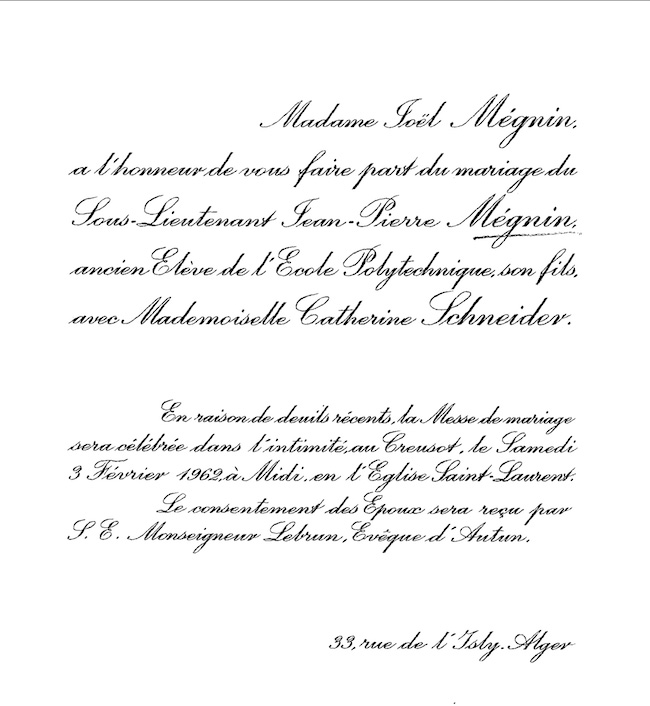 Madame Joël Mégnin,
a l'honneur de vous faire part du mariage du
Sous-Lieutenant Jean-Pierre Mégnin,
ancien Elève de l'Ecole Polytechnique, son fils,
avec Mademoiselle Catherine Schneider.
En raison de deuils récents, la Messe de mariage
sera célébrée dans l'intimité, au Creusot, le Samedi
3 Février 1962, à Midi, en l'Eglise Saint-Laurent.
Le consentement des Epoux sera reçu par
S. E. Monseigneur Lebrun, Evêque d'Autun.
33, rue de l'Isly. Alger